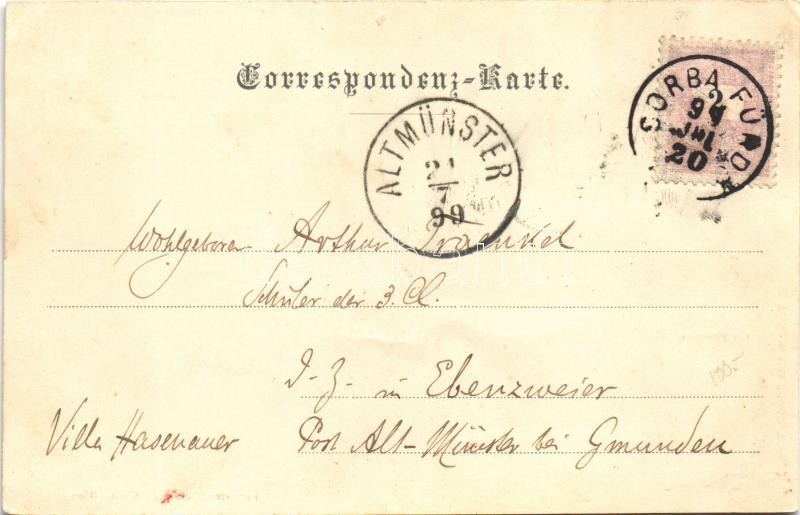 Correspondenz-Karte.
CSORBA FÜRDŐ
99
JUL
20
ALTMÜNSTER
21
7
99
Wohlgeboren Arthur Fraenkel
Schüler der 3. Cl.
d. Z. in Ebenzweier
Villa Hasenauer Post Alt-Münster bei Gmunden
100.-